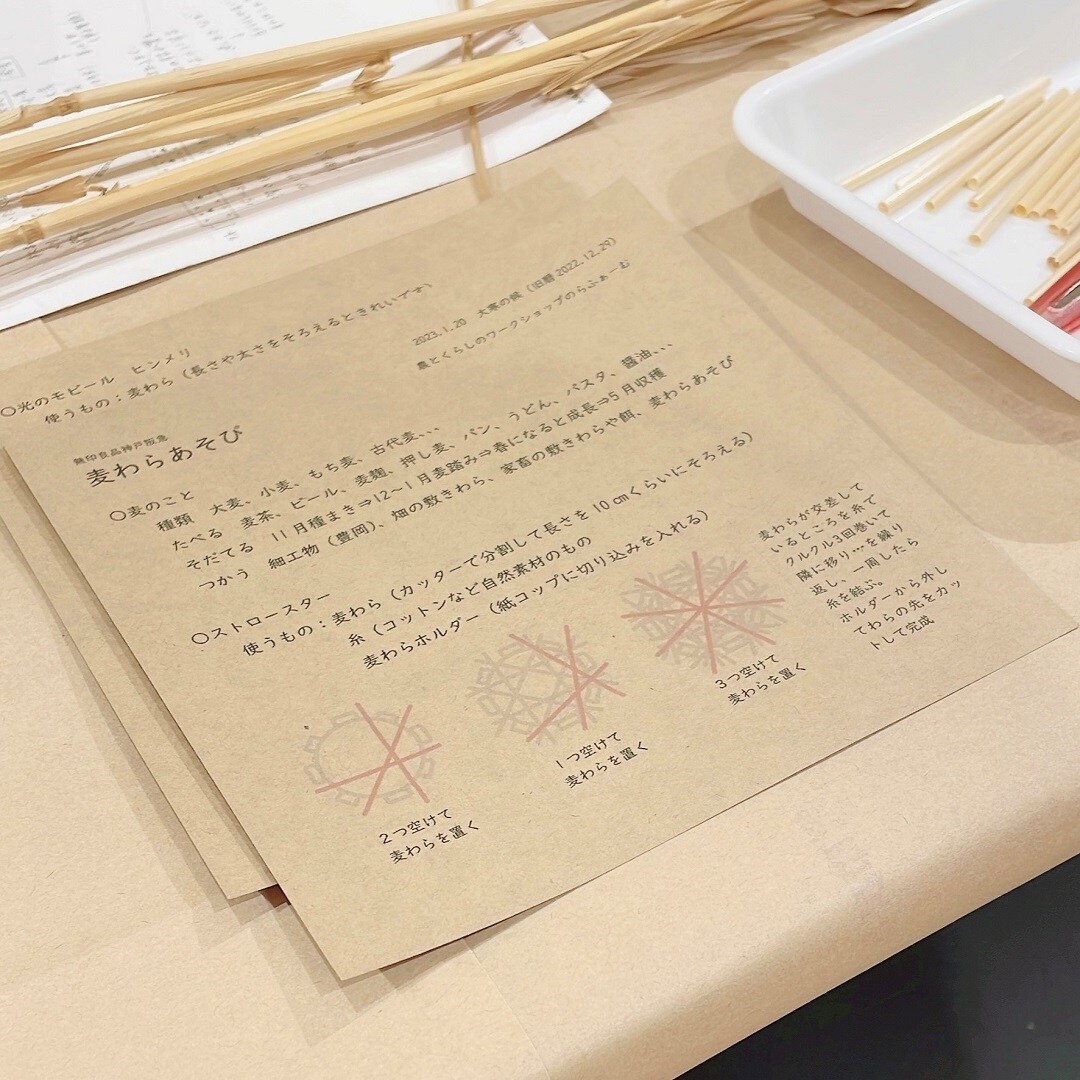 〇光のモビール　ヒンメリ
使うもの：麦わら（長さや太さをそろえるときれいです）
2023.1.20　大寒の候（旧暦2022.12.29）
農とくらしのワークショップのらふぁーむ
無印良品神戸阪急
麦わらあそび
〇麦のこと
種類　大麦、小麦、もち麦、古代麦、、、
たべる　麦茶、ビール、麦麹、押し麦、パン、うどん、パスタ、醤油、、、
そだてる　11月種まき⇒12～1月麦踏み⇒春になると成長⇒5月収穫
つかう　細工物（豊岡）、畑の敷きわら、家畜の敷きわらや餌、麦わらあそび
〇ストロースター
使うもの：麦わら（カッターで分割して長さを10㎝くらいにそろえる）
糸（コットンなど自然素材のもの
麦わらホルダー（紙コップに切り込みを入れる）
2つ空けて
麦わらを置く
1つ空けて
麦わらを置く
3つ空けて
麦わらを置く
麦わらが交差して
いるところを糸で
クルクル3回巻いて
隣に移り…を繰り
返し、一周したら
糸を結ぶ。
ホルダーから外し
てわらの先をカッ
トして完成